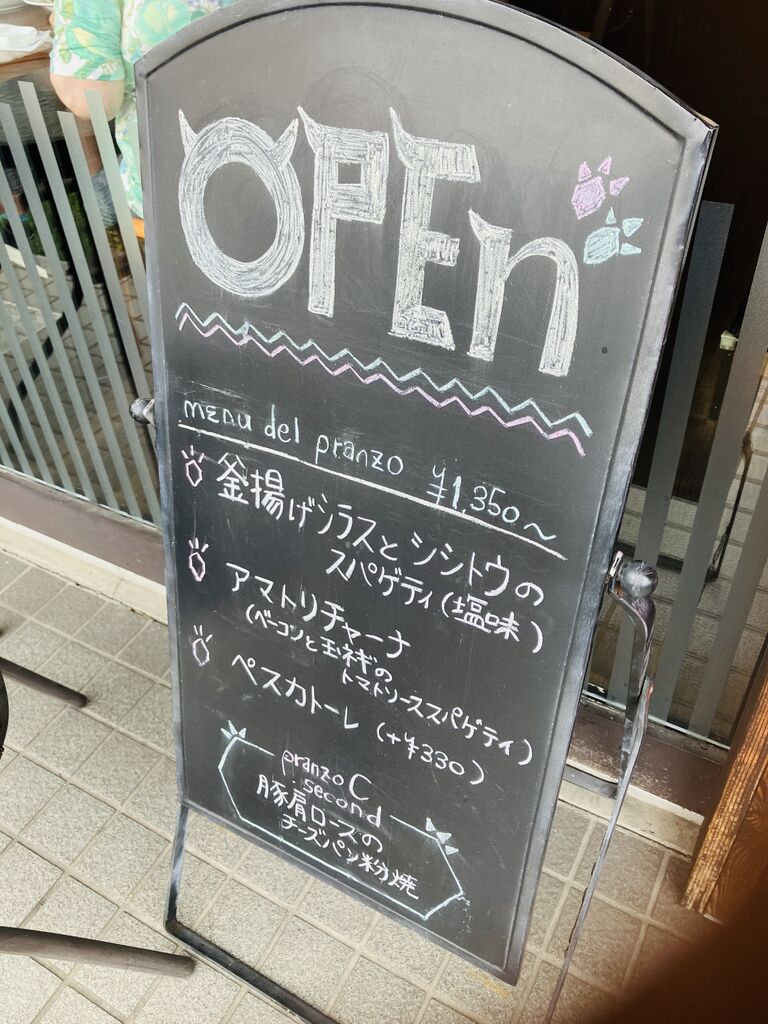 OPEn
menu del pranzo ¥1,350～
釜揚げシラスとシシトウの
スパゲティ(塩味)
アマトリチャーナ
(ベーコンと玉ネギの
トマトソーススパゲティ)
ペスカトーレ (+¥330)
pranzo C
second
豚肩ロースの
チーズパン粉焼